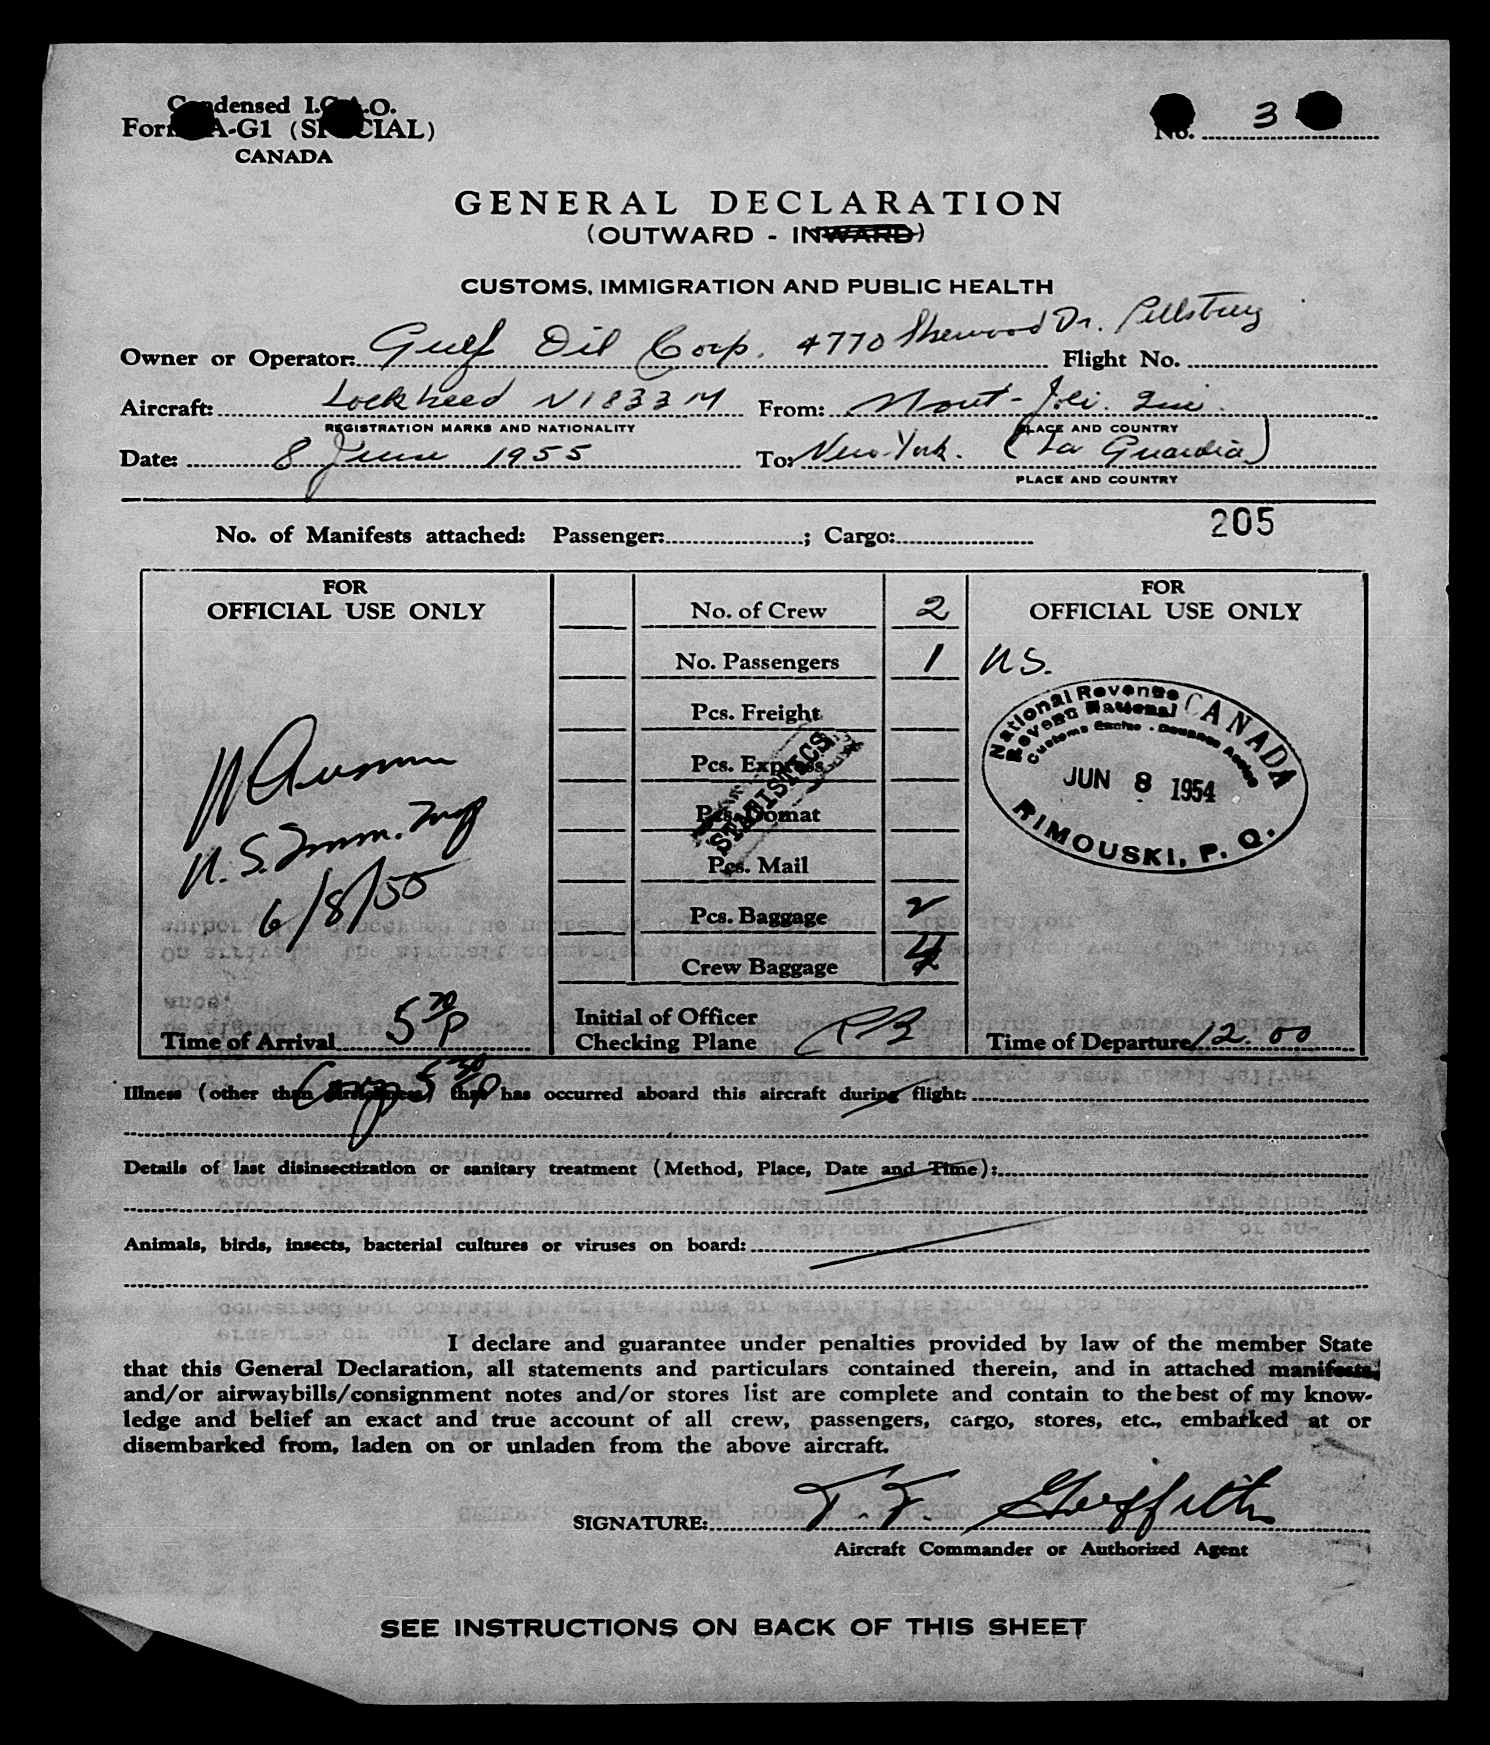 Condensed I.C.A.O.
Form A-G1 (SPECIAL)
CANADA
No. 3
GENERAL DECLARATION
(OUTWARD - INWARD)
CUSTOMS, IMMIGRATION AND PUBLIC HEALTH
Owner or Operator: Gulf Oil Corp. 4770 Sherwood Dr. Pittsburg Flight No.
Aircraft: Lockheed N1833M From: Mont-Joli. Que.
REGISTRATION MARKS AND NATIONALITY PLACE AND COUNTRY
Date: 8 June 1955 To: New-York. (La Guardia)
PLACE AND COUNTRY
205
No. of Manifests attached: Passenger: ; Cargo:
FOR
OFFICIAL USE ONLY
U.S. Imm. Insp
6/8/55
Time of Arrival 5 30 P
No. of Crew 2
No. Passengers 1
Pcs. Freight
Pcs. Express
Pcs. Comat
Pcs. Mail
STATISTICS
Pcs. Baggage 2
Crew Baggage
Initial of Officer
Checking Plane
FOR
OFFICIAL USE ONLY
U.S.
National Revenue CANADA
Revenu National
Customs Excise - Douanes Accise
JUN 8 1954
RIMOUSKI, P. Q.
Time of Departure 12.00
Illness (other than airsickness) that has occurred aboard this aircraft during flight:
5 30 P
Details of last disinsectization or sanitary treatment (Method, Place, Date and Time):
Animals, birds, insects, bacterial cultures or viruses on board:
I declare and guarantee under penalties provided by law of the member State
that this General Declaration, all statements and particulars contained therein, and in attached manifests,
and/or airwaybills/consignment notes and/or stores list are complete and contain to the best of my know-
ledge and belief an exact and true account of all crew, passengers, cargo, stores, etc., embarked at or
disembarked from, laden on or unladen from the above aircraft.
SIGNATURE: T. F. Griffith
Aircraft Commander or Authorized Agent
SEE INSTRUCTIONS ON BACK OF THIS SHEET